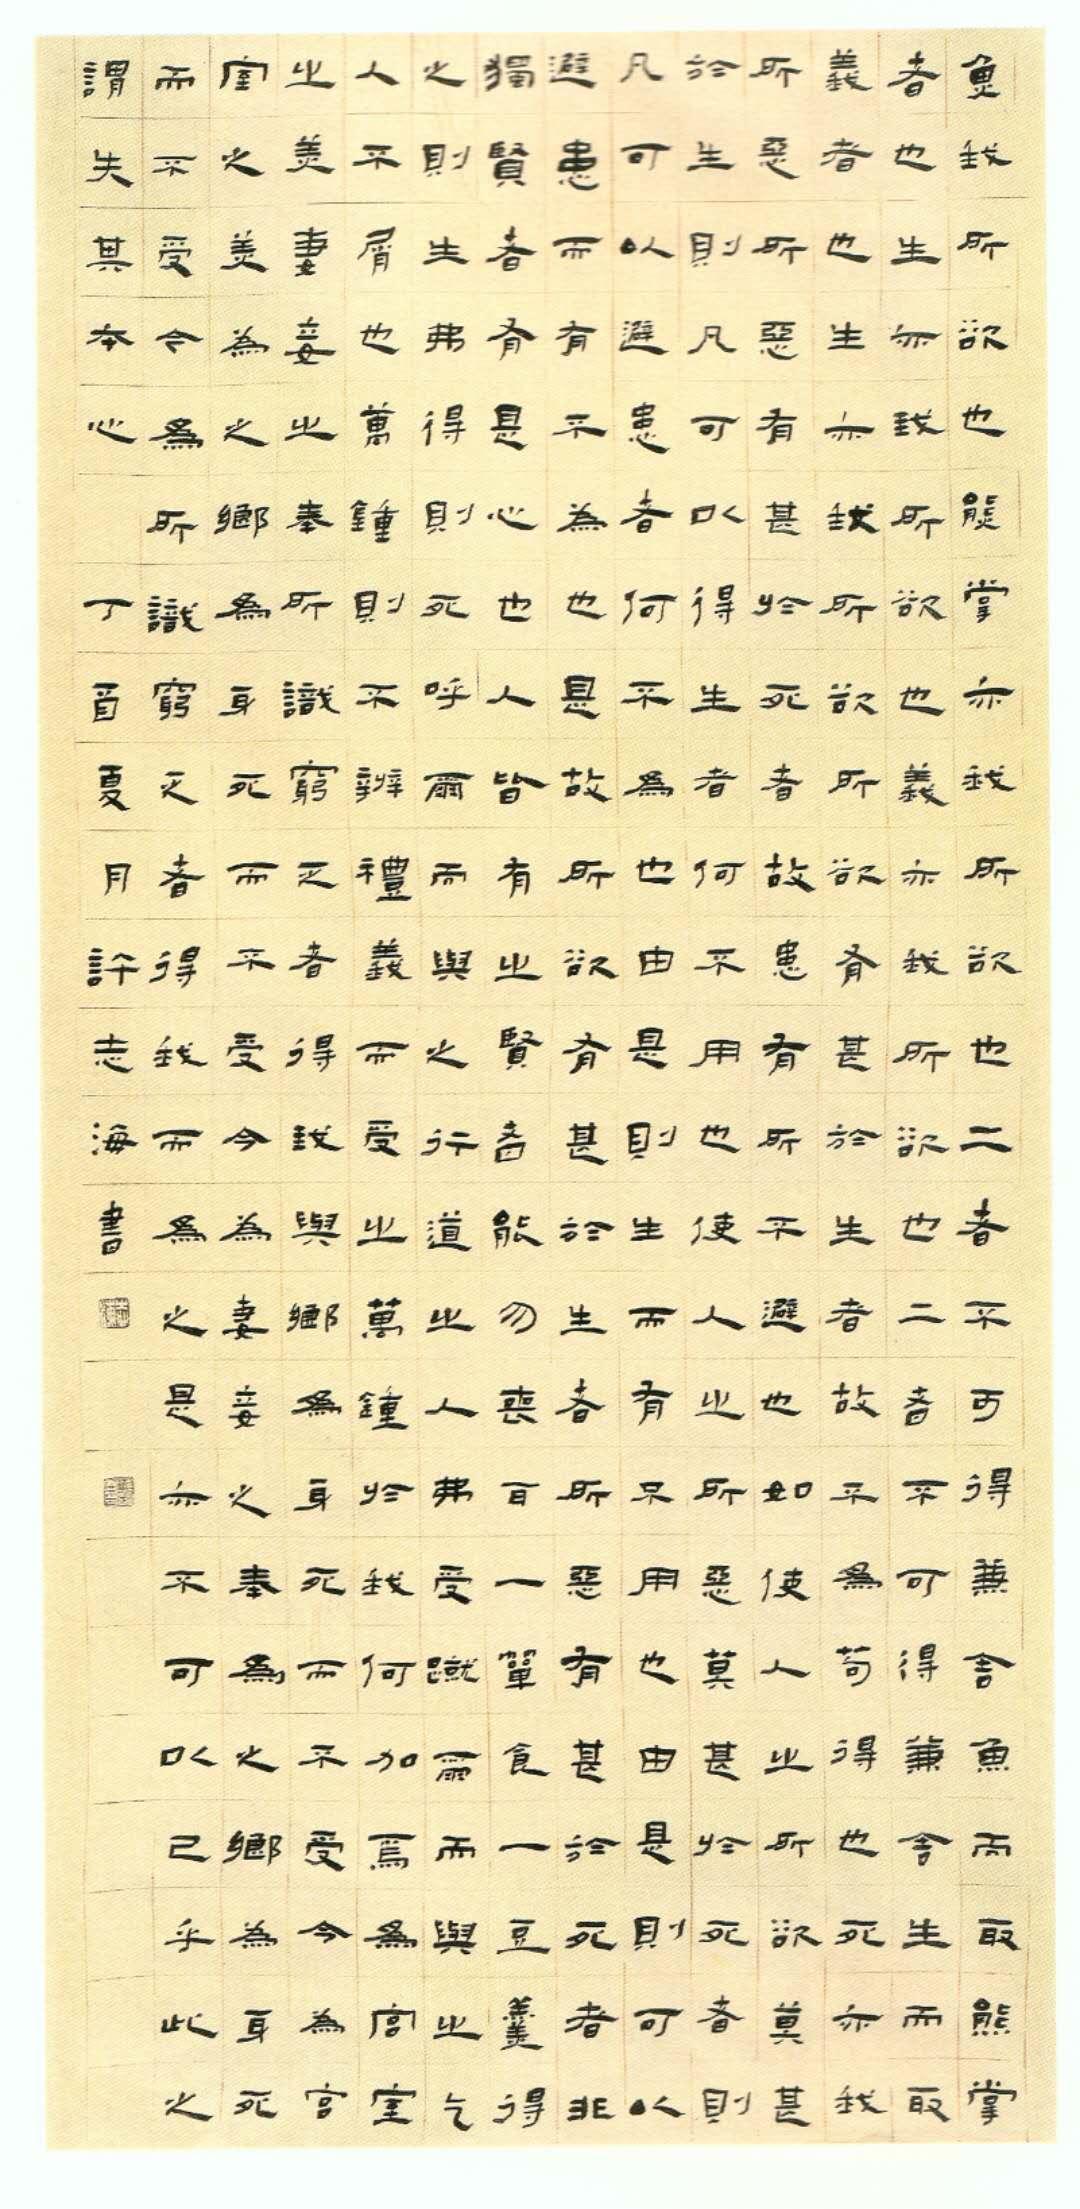 魚我所欲也熊掌亦我所欲也二者不可得兼舍魚而取熊掌
者也生亦我所欲也義亦我所欲也二者不可得兼舍生而取
義者也生亦我所欲所欲有甚於生者故不為苟得也死亦我
所惡所惡有甚於死者故患有所不避也如使人之所欲莫甚
於生則凡可以得生者何不用也使人之所惡莫甚於死者則
凡可以避患者何不為也由是則生而有不用也由是則可以
避患而有不為也是故所欲有甚於生者所惡有甚於死者非
獨賢者有是心也人皆有之賢者能勿喪耳一簞食一豆羹得
之則生弗得則死呼爾而與之行道之人弗受蹴爾而與之乞
人不屑也萬鍾則不辨禮義而受之萬鍾於我何加焉為宮室
之美妻妾之奉所識窮乏者得我與鄉為身死而不受今為宮
室之美為之鄉為身死而不受今為妻妾之奉為之鄉為身死
而不受今為所識窮乏者得我而為之是亦不可以已乎此之
謂失其本心 丁酉夏月許志海書